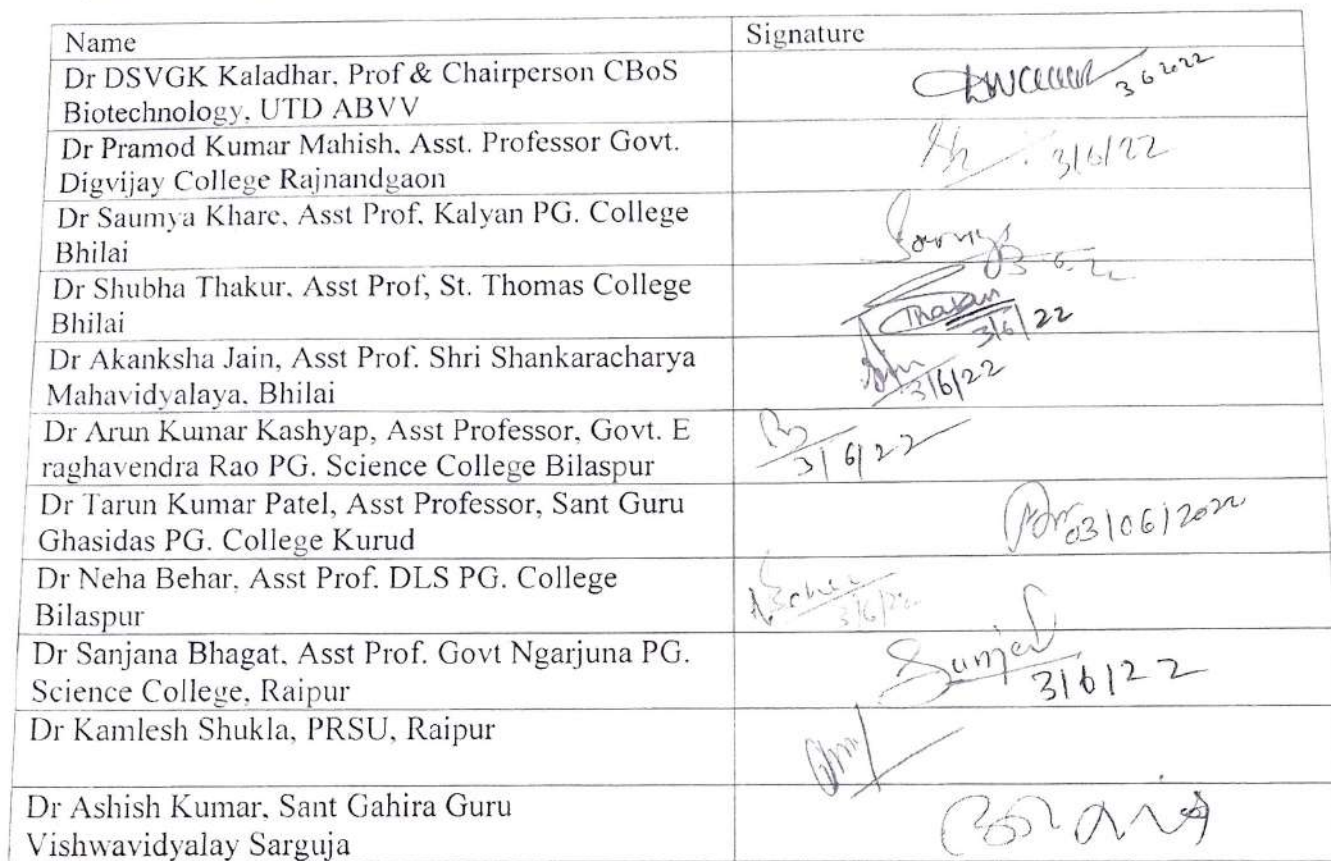 Name Signature
Dr DSVGK Kaladhar, Prof & Chairperson CBoS
Biotechnology, UTD ABVV
3 6 2022
Dr Pramod Kumar Mahish, Asst. Professor Govt.
Digvijay College Rajnandgaon
3/6/22
Dr Saumya Khare, Asst Prof, Kalyan PG. College
Bhilai
Saumya
3.6.22
Dr Shubha Thakur, Asst Prof, St. Thomas College
Bhilai
Thakur
3/6/22
Dr Akanksha Jain, Asst Prof. Shri Shankaracharya
Mahavidyalaya, Bhilai
3/6/22
Dr Arun Kumar Kashyap, Asst Professor, Govt. E
raghavendra Rao PG. Science College Bilaspur
3/6/22
Dr Tarun Kumar Patel, Asst Professor, Sant Guru
Ghasidas PG. College Kurud
03/06/2022
Dr Neha Behar, Asst Prof. DLS PG. College
Bilaspur
3/6/22
Dr Sanjana Bhagat, Asst Prof. Govt Ngarjuna PG.
Science College, Raipur
3/6/22
Dr Kamlesh Shukla, PRSU, Raipur
Dr Ashish Kumar, Sant Gahira Guru
Vishwavidyalay Sarguja